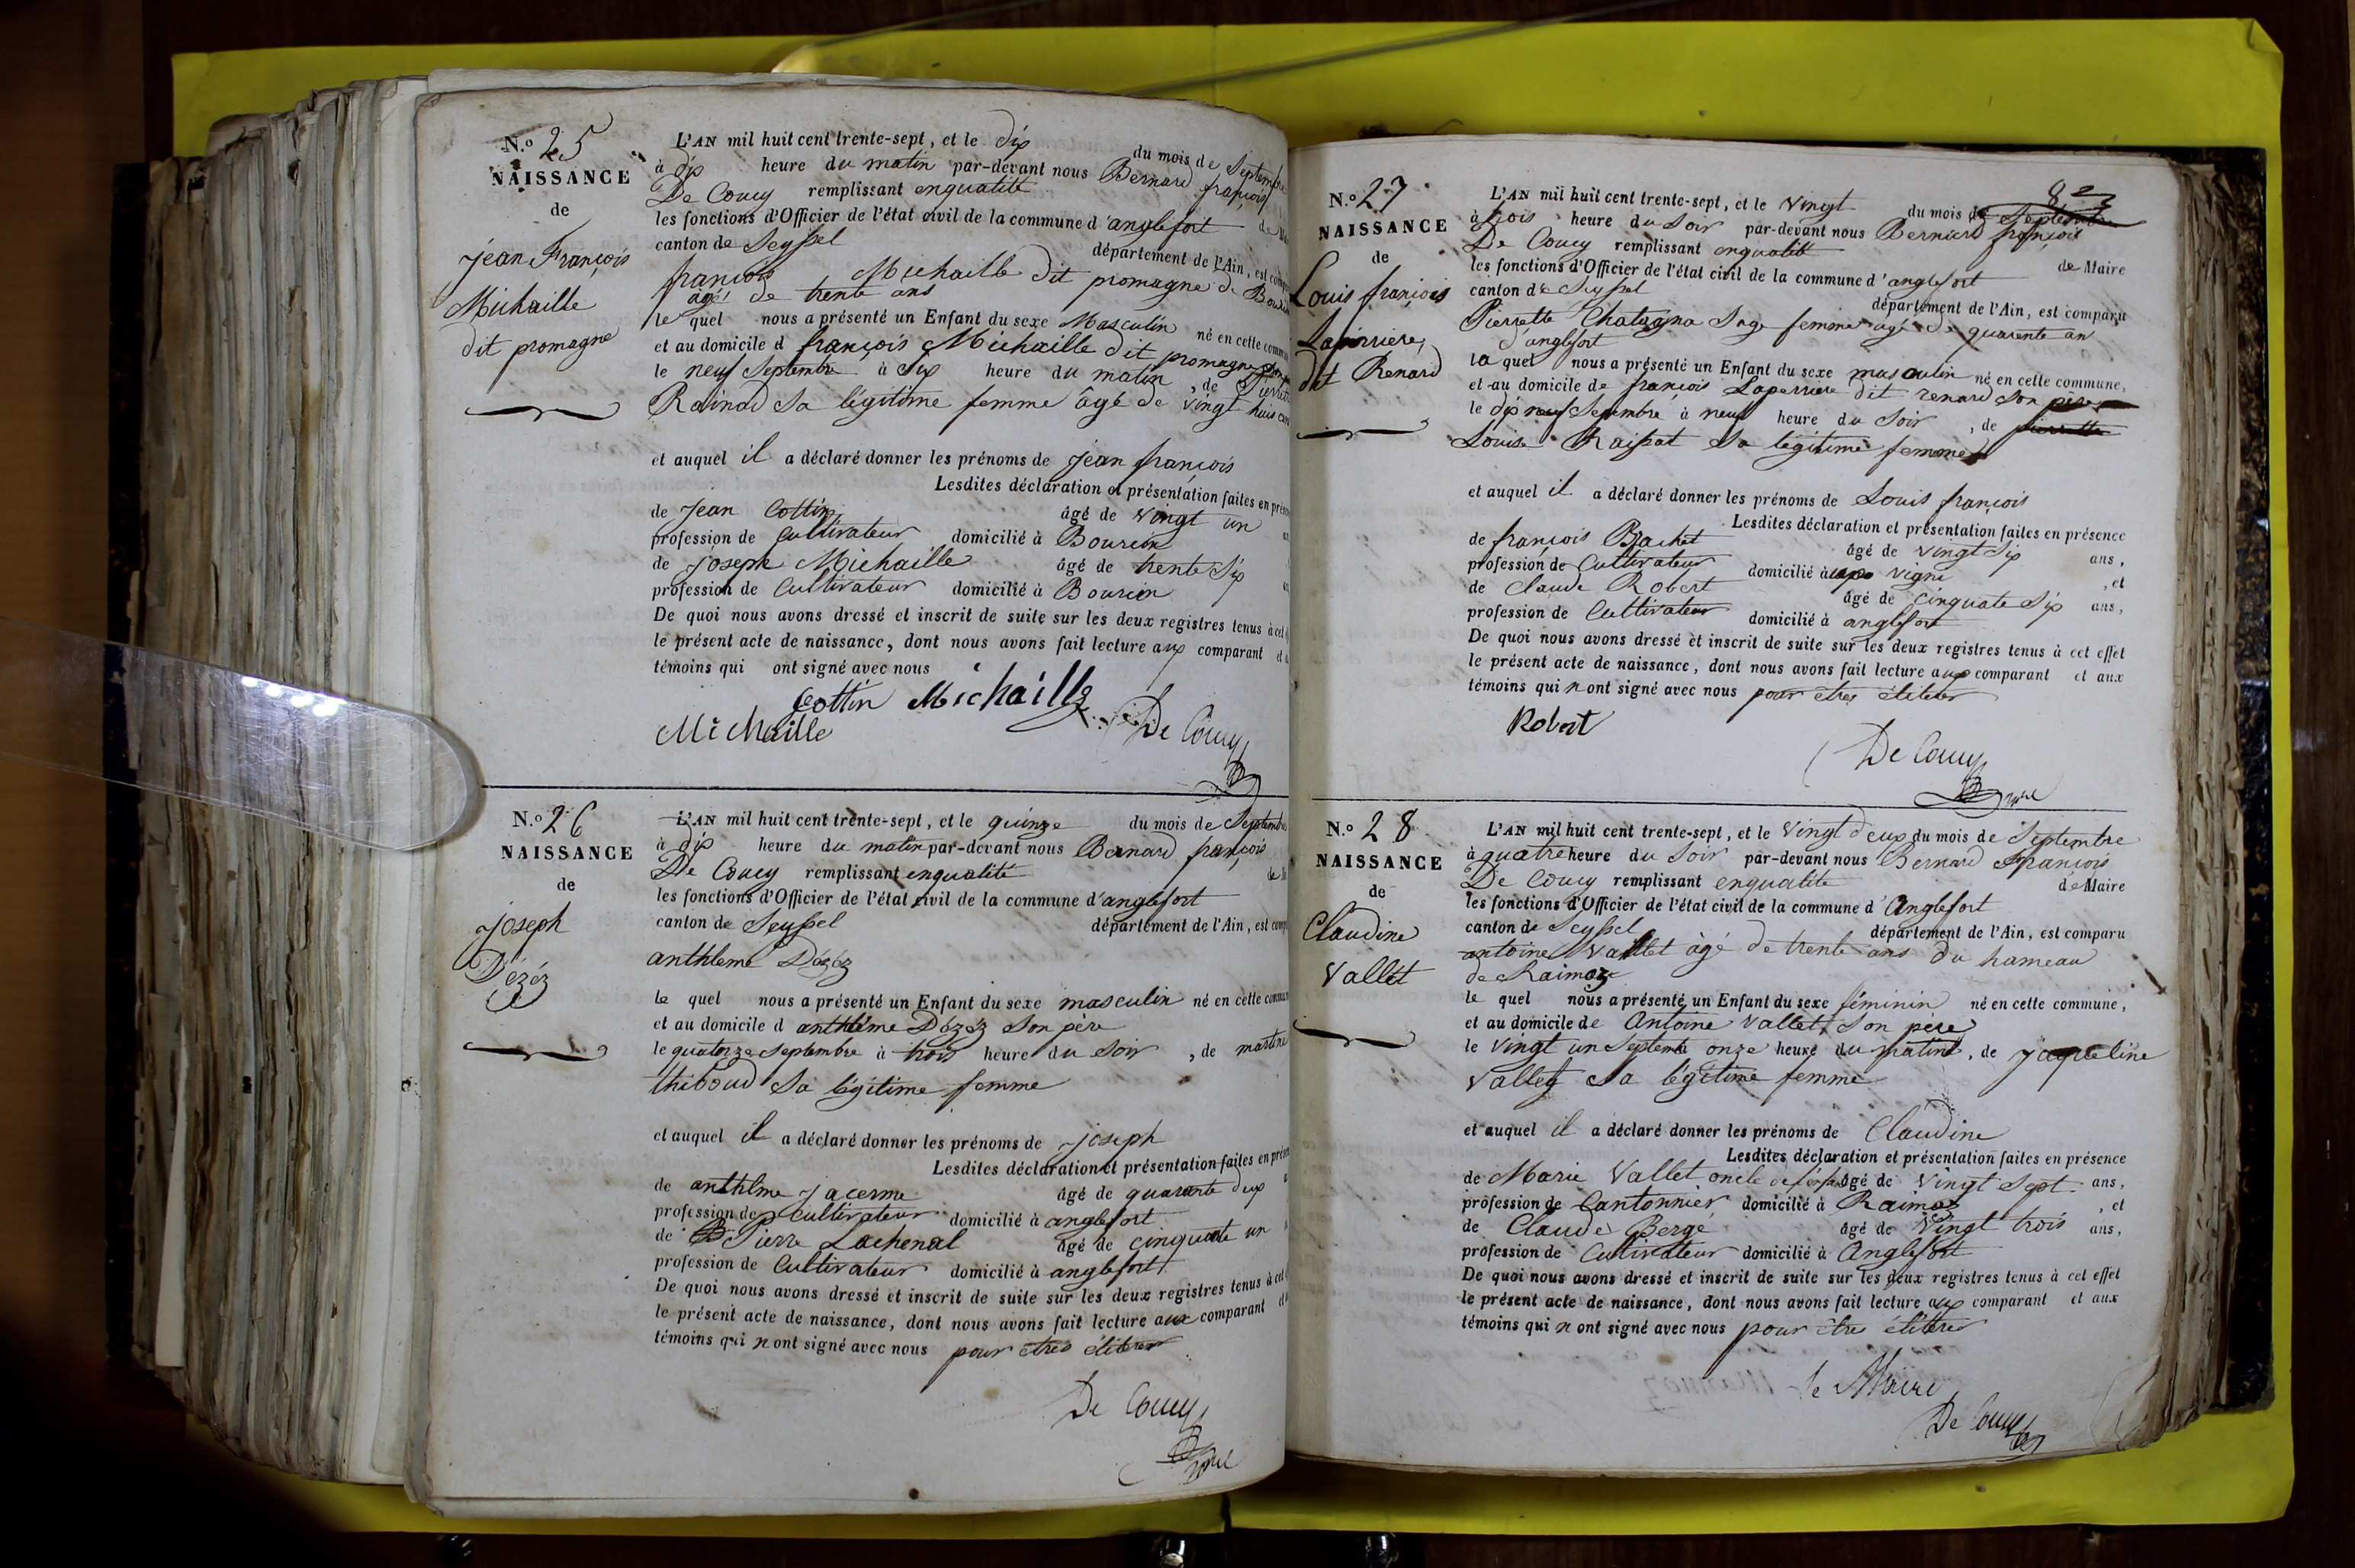 N.o 25
NAISSANCE
de
Jean François
Michaille
dit promagne
L'AN mil huit cent trente-sept, et le dix du mois de Septembre
à dix heure du matin par-devant nous Bernard françois
De Coucy remplissant enqualité
les fonctions d'Officier de l'état civil de la commune d'anglefort
canton de Seyssel département de l'Ain, est
françois Michaille dit promagne de
âgé de trente ans
le quel nous a présenté un Enfant du sexe Masculin né en cette
et au domicile d françois Michaille dit promagne
le neuf Septembre à Six heure du matin, de
Rainad Sa légitime femme âgé de vingt huit
et auquel il a déclaré donner les prénoms de Jean françois
Lesdites déclaration et présentation faites en
de Jean Cottin âgé de vingt un
profession de Cultivateur domicilié à Bourcin
de Joseph Michaille âgé de trente Six
profession de Cultivateur domicilié à Bourcin
De quoi nous avons dressé et inscrit de suite sur les deux registres tenus à cet
le présent acte de naissance, dont nous avons fait lecture aux comparant
témoins qui ont signé avec nous
Cottin Michaille
Michaille De Coucy
N.o 26
NAISSANCE
de
Joseph
Dézéz
L'AN mil huit cent trente-sept, et le quinze du mois de Septembre
à dix heure du matin par-devant nous Bernard françois
De Coucy remplissant enqualité
les fonctions d'Officier de l'état civil de la commune d'anglefort
canton de Seyssel département de l'Ain, est
anthleme Dézéz
le quel nous a présenté un Enfant du sexe masculin né en cette
et au domicile d anthléme Dézéz Son père
le quatorze Septembre à trois heure du Soir, de martine
thiboud Sa légitime femme
et auquel il a déclaré donner les prénoms de Joseph
Lesdites déclaration et présentation faites en
de anthlme Jacerme âgé de quarante deux
profession de Cultivateur domicilié à anglefort
de Pierre Lachenal âgé de cinquate un
profession de Cultivateur domicilié à anglefort
De quoi nous avons dressé et inscrit de suite sur les deux registres tenus à cet
le présent acte de naissance, dont nous avons fait lecture aux comparant
témoins qui n ont signé avec nous pour êtres
De Coucy
N.o 27
NAISSANCE
de
Louis françois
Laperriere
dit Renard
L'AN mil huit cent trente-sept, et le vingt du mois de Septembre
à trois heure du Soir par-devant nous Bernard françois
De Coucy remplissant enqualité de Maire
les fonctions d'Officier de l'état civil de la commune d'anglefort
canton de Seyssel département de l'Ain, est comparu
Pierrette Chatagna Sage femme agé de quarente an
d'anglefort
la quel nous a présenté un Enfant du sexe masculin né en cette commune,
et au domicile de françois Laperriere dit renard son père
le dix neuf Septembre à neuf heure du Soir, de
Louise Raissat Sa légitime femme
et auquel il a déclaré donner les prénoms de Louis françois
Lesdites déclaration et présentation faites en présence
de françois Bachet âgé de vingt Six ans,
profession de Cultivateur domicilié à vigne, et
de Claude Robert âgé de cinquate Six ans,
profession de Cultivateur domicilié à anglefort
De quoi nous avons dressé et inscrit de suite sur les deux registres tenus à cet effet
le présent acte de naissance, dont nous avons fait lecture aux comparant et aux
témoins qui n ont signé avec nous pour êtres
Robert
De Coucy
N.o 28
NAISSANCE
de
Claudine
Vallet
L'AN mil huit cent trente-sept, et le Vingt deux du mois de Septembre
à quatre heure du Soir par-devant nous Bernard françois
De Coucy remplissant enqualité de Maire
les fonctions d'Officier de l'état civil de la commune d'Anglefort
canton de Seyssel département de l'Ain, est comparu
antoine Vallet âgé de trente ans du hameau
de Raimoz
le quel nous a présenté un Enfant du sexe féminin né en cette commune,
et au domicile de Antoine Vallet Son père
le Vingt un Septembre onze heure du matin, de Jaqueline
Vallet Sa légitime femme
et auquel il a déclaré donner les prénoms de Claudine
Lesdites déclaration et présentation faites en présence
de Marie Vallet oncle âgé de Vingt Sept ans,
profession de Cantonnier domicilié à Raimoz, et
de Claude Bergé âgé de Vingt trois ans,
profession de Cultivateur domicilié à Anglefort
De quoi nous avons dressé et inscrit de suite sur les deux registres tenus à cet effet
le présent acte de naissance, dont nous avons fait lecture aux comparant et aux
témoins qui n ont signé avec nous pour être
le Maire
De Coucy